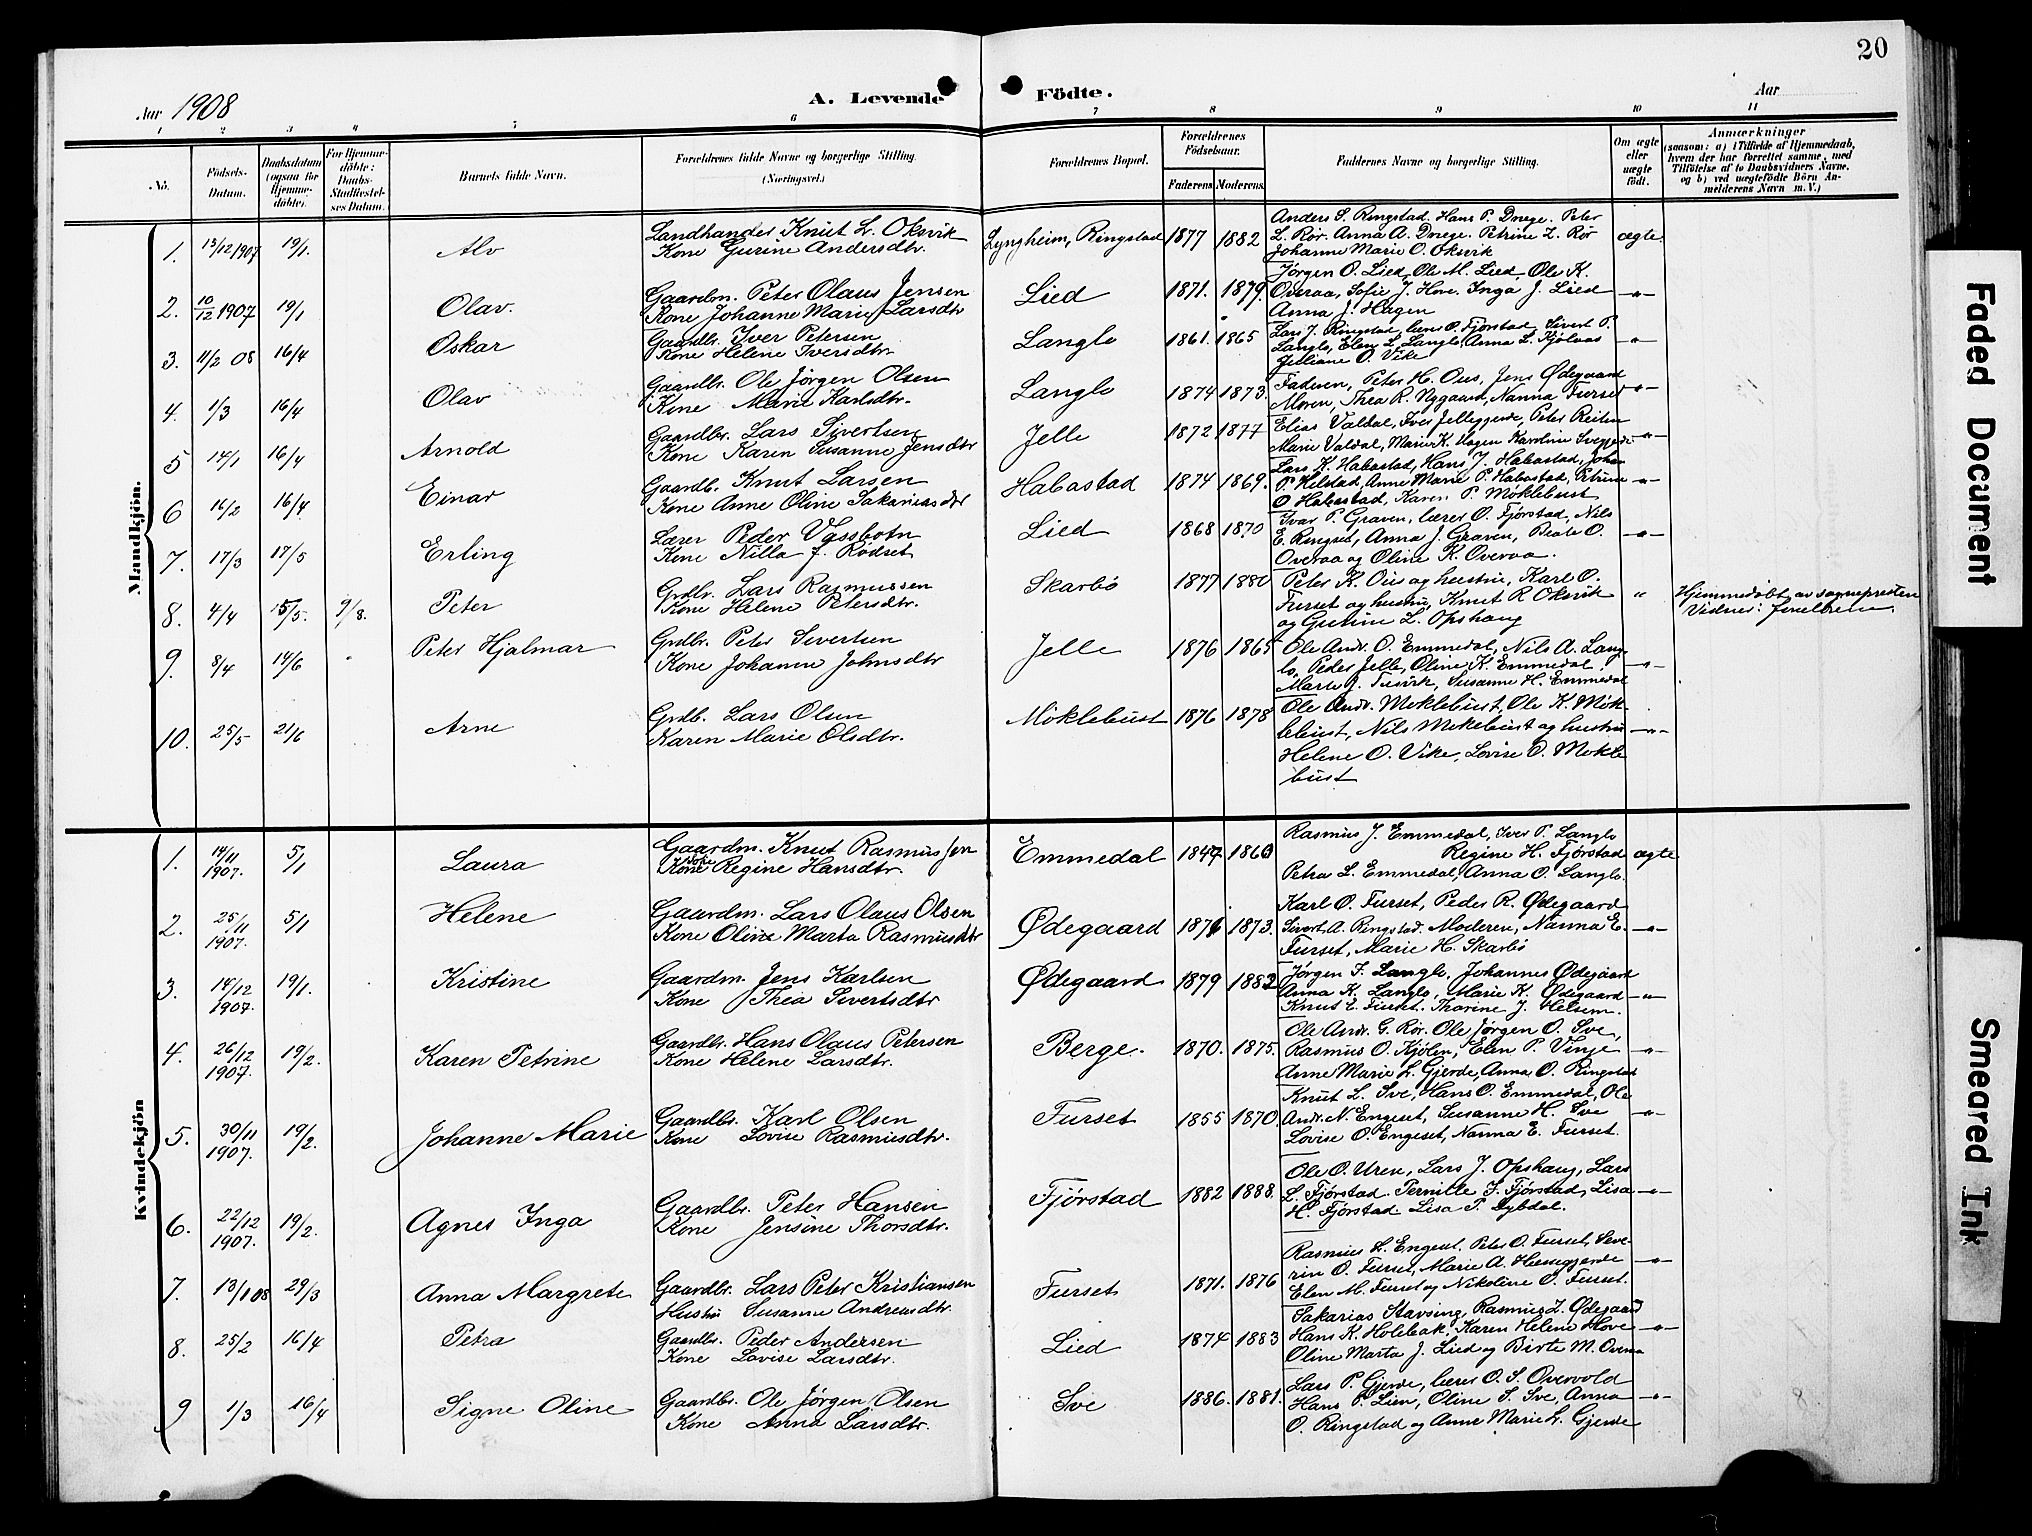 20
Aar 1908
A. Levende Födte.
Aar
1 2 3 4 5 6 7 8 9 10 11
No.
Födsels-Datum.
Daabsdatum (ogsaa for Hjemme-döbte).
For Hjemme-döbte: Daabs-Stadfæstel-ses Datum.
Barnets fulde Navn.
Forældrenes fulde Navne og borgerlige Stilling. (Næringsvei.)
Forældrenes Bopæl.
Forældrenes Födselsaar.
Faderens Moderens.
Faddernes Navne og borgerlige Stilling.
Om ægte eller uægte födt.
Anmærkninger
(saasom: a) i Tilfælde af Hjemmedaab, hvem der har forrettet samme, med Tilföielse af to Daabsvidners Navne, og b) ved uægtefödte Börn An-melderens Navn m. V.)
Mandkjön.
1. 13/12 1907 19/1. Alv
Landhandler Knut L. Oksvik
Kone Gurine Andersdtr.
Lyngheim, Ringstad 1877 1882
Anders S. Ringstad. Hans P. Drege. Peter
L. Rør. Anna A. Drege. Petrine L. Rør
Johanne Marie O. Oksvik
ægte.
2. 10/12 1907 19/1 Olav.
Gaardm. Peter Olaus Jensen
Kone Johanne Marie Larsdtr
Lied 1871. 1879.
Jørgen O. Lied, Ole M. Lied, Ole K.
Overaa, Sofie J. Hove. Inga J. Lied
Anna J. Hagen
-"-
3. 11/2 08 16/4 Oskar
Gaardbr. Iver Petersen
Kone Helene Iversdtr.
Langlo 1861. 1865
Lars J. Ringstad, lærer O. Fjørstad, Sivert P.
Langlo, Elen L. Langlo, Anna L. Kjølaas
Juliane O. Vike
-"-
4. 1/3 16/4 Olav
Gaardbr. Ole Jørgen Olsen
Kone Marie Karlsdtr.
Langlo 1874 1873.
Faderen, Peter H. Ous, Jens Ødegaard
Moren, Thea R. Nygaard, Nanna Furset
-"-
5 14/1 16/4 Arnold
Gaardbr. Lars Sivertsen
Kone Karen Susanne Jensdtr
Jelle 1872 1877
Elias Valdal, Iver Jelleggerde, Peter Reiten
Marie Valdal, Marie K. Hagen Karoline
-"-
6 16/2 16/4 Einar
Gaardb. Knut Larsen
Kone Anne Oline Sakariasdtr
Habastad 1874 1869.
Lars K. Habostad, Hans J. Habastad, Johan
P. Helstad, Anne Marie P. Habostad, Petrine
O Habostad, Karen P. Møklebust
-"-
7. 17/3 17/5 Erling
Lærer Peder Vassbotn
Kone Nilla J. Rødset
Lied 1868 1870
Ivar P. Graven, lærer O. Fjørstad, Nils
E. Ringset, Anna J. Graven, Beate O.
Overaa og Oline K. Overaa.
-"-
8. 4/4 15/5. 9/8. Peter
Grdbr. Lars Rasmussen
Kone Helene Petersdtr.
Skarbö 1877 1880
Peter K. Ous og hustru, Karl O.
Furset og hustru, Knut R Oksvik
og Gurine L. Opshaug
"
Hjemmedøbt av sognepresten
Vidner: forældrene.
9. 8/4 14/6 Peter Hjalmar
Grdbr. Peter Sivertsen
Kone Johanne Johnsdtr
Jelle 1876 1865
Ole Andr. O. Emmedal, Nils A. Lang-
lo, Peder Jelle, Oline K. Emmedal
Marte J. Tusvik, Susanne H. Emmedal
-"-
10. 25/5 21/6 Arne
Grdb. Lars Olsen
Karen Marie Olsdtr.
Möklebust 1876 1878
Ole Andr. Møklebust, Ole K. Møk-
lebust, Nils Møklebust og hustru
Helene O. Vike, Lovise O. Møkle
bust
-"-
Kvindekjön
1. 14/11 1907. 5/1 Laura
Gaardm. Knut Rasmussen
Kone Regine Hansdtr.
Emmedal 1847 1860
Rasmus J. Emmedal, Iver P. Langlo
Regine H. Fjørstad
Petra L. Emmedal, Anna O. Langlo.
ægte.
2. 25/11 1907. 5/1 Helene
Gaardm. Lars Olaus Olsen
Kone Oline Marta Rasmusdtr
Ødegaard 1876 1873.
Karl O. Furset, Peder R. Ødegaard
Sivert A. Ringstad. Moderen, Nanna E.
Furset, Marie H. Skarbö
-"-
3. 14/12 1907. 19/1. Kristine
Gaardm. Jens Karlsen
Kone Thea Sivertsdtr
Ødegaard 1879 1882
Jørgen F. Langlo, Johannes Ødegaard
Anna K. Langlo, Marie K. Ødegaard
Knut E. Furset. Thorine J. Helsem.
-"-
4. 26/12 1907. 19/2. Karen Petrine
Gaardbr. Hans Olaus Petersen
Kone Helene Larsdtr.
Berge. 1870. 1875.
Ole Andr. G. Rør. Ole Jørgen O. Sve,
Rasmus O. Kjølen, Elen P. Vinje
Anne Marie L. Gjerde, Anna O. Ringstad
-"-
5. 30/11 1907. 19/2. Johanne Marie
Gaardbr. Karl Olsen
Kone Lovise Rasmusdtr.
Furset 1855 1870.
Knut L. Sve, Hans O. Emmedal, Ole
Andr. N. Engeset, Susanne H. Sve
Lovise O. Engeset, Nanna E. Furset.
-"-
6. 22/12 1907. 19/2. Agnes Inga
Gaardbr. Peter Hansen
Kone Jensine Thorsdtr.
Fjørstad 1882 1888.
Ole O. Uren, Lars J. Opshaug, Lars
L. Fjørstad. Pernille J. Fjørstad, Lisa
H. Fjørstad Lisa P. Dybdal.
-"-
7. 13/1 08 29/3 Anna Margrete
Gaardbr. Lars Peter Kristiansen
Hustru Susanne Andreasdtr.
Furset 1871. 1876
Rasmus L. Engeset. Peter O. Furset, Seve-
rin O. Furset, Marie A.
Elen M. Furset og Nikoline O. Furset.
-"-
8. 25/2 16/4 Petra
Gaardbr. Peder Andersen
Kone Lovise Larsdtr.
Lied 1874 1883
Sakarias Stavseng, Rasmus L. Ødegaard
Hans K. Holebak, Karen Helene Hove
Oline Marta J. Lied og Birte M. Overaa
-"-
9 1/3 16/4 Signe Oline
Gaardbr. Ole Jørgen Olsen
Kone Anna Larsdtr.
Sve 1886. 1881.
Lars P. Gjerde, lærer O. S. Overvold
Hans P. Lien, Oline S. Sve, Anna
O. Ringstad og Anne Marie L. Gjerde
-"-
Faded Document
Smeared Ink